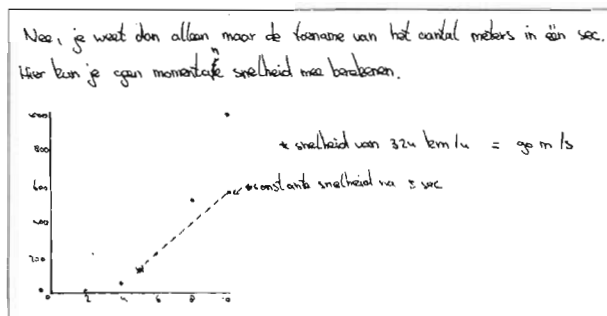 Nee, je weet dan alleen maar de toename van het aantal meters in één sec.
Hier kun je geen momentane snelheid mee berekenen.
* snelheid van 324 km/u = 90 m/s
* constante snelheid na 5 sec
800
600
400
200
0
0 2 4 6 8 10